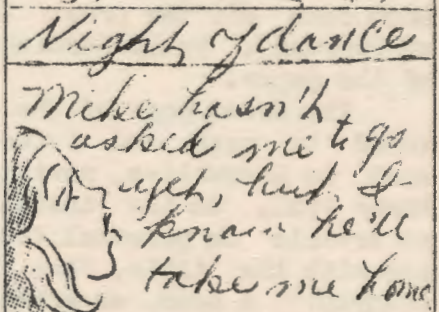 Night of dance
Mike hasn't
asked me to go
yet, but I
know he'll
take me home